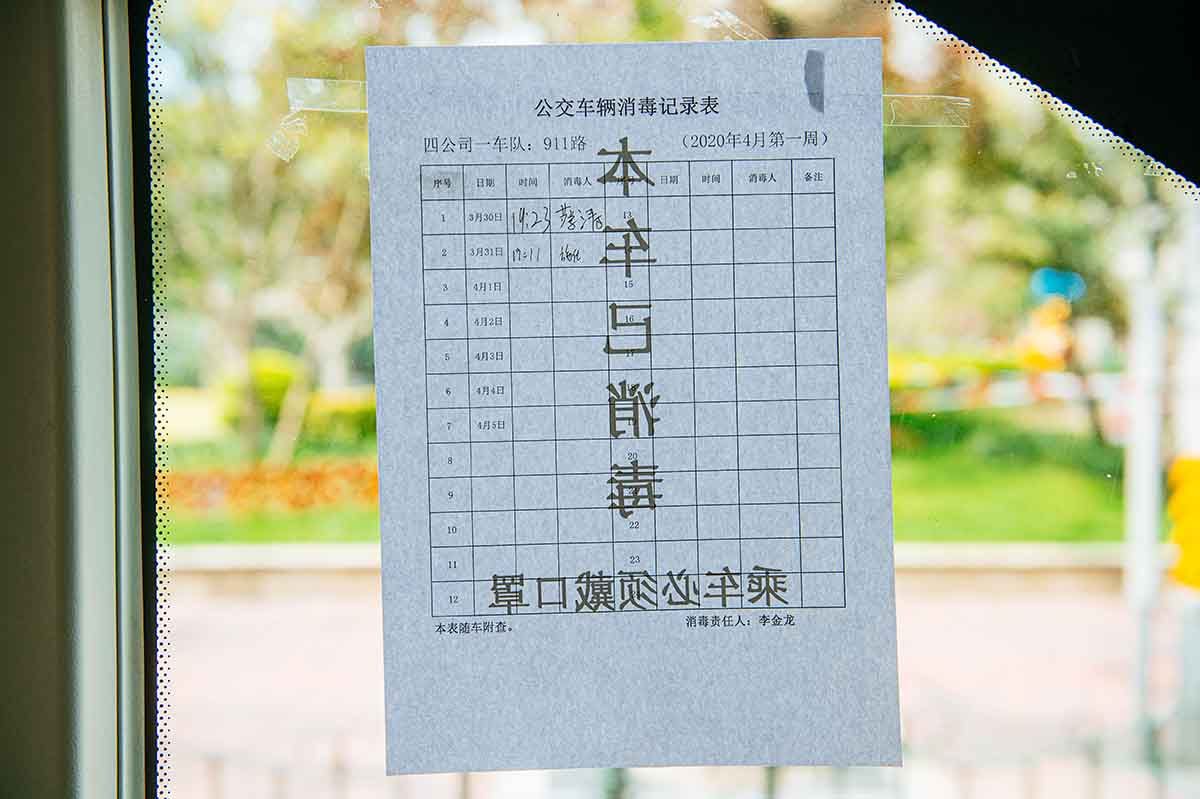 公交车辆消毒记录表
四公司一车队：911路 （2020年4月第一周）
序号 日期 时间 消毒人 日期 时间 消毒人 备注
1 3月30日 13
2 3月31日 17:11
3 4月1日 15
4 4月2日 16
5 4月3日
6 4月4日
7 4月5日
8 20
9
10 22
11 23
12
本表随车附查。 消毒责任人：李金龙
本车已消毒
乘车必须戴口罩